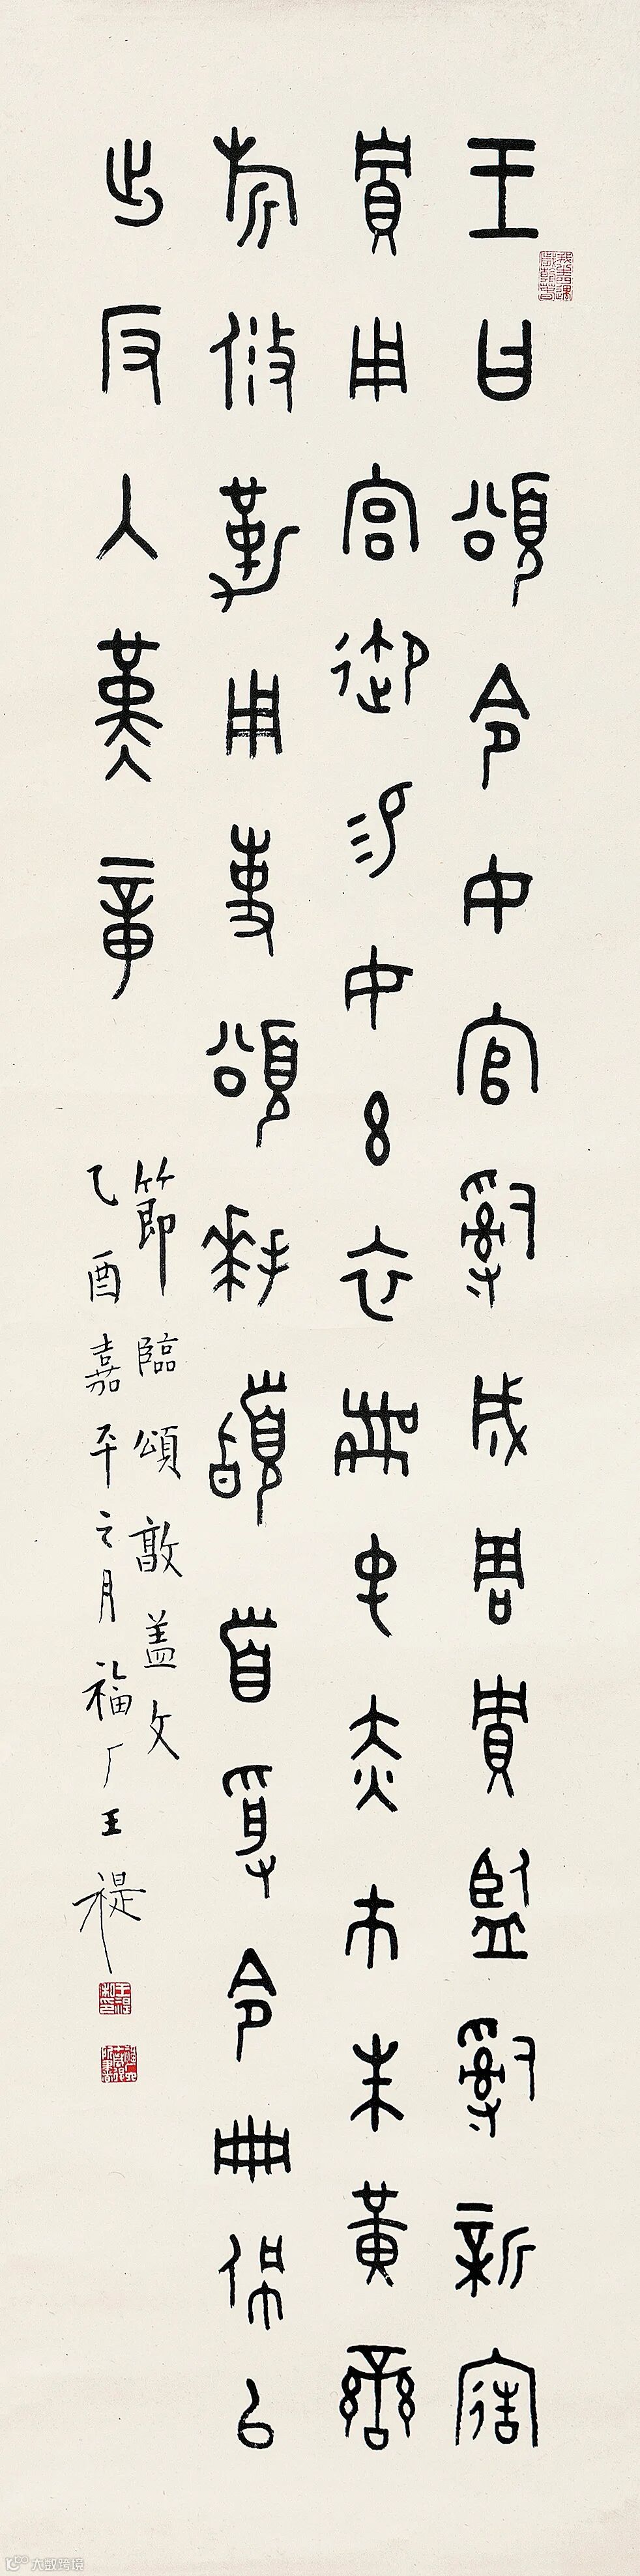 王曰頌令女官𤔲成周貯監𤔲新造
貯用宮御易女玄衣黹屯赤巿朱黃䜌
旂攸勒用事頌拜䭫首受令冊佩以
出反入堇章
節臨頌敦蓋文
乙酉嘉平之月福厂王禔
大数跨境